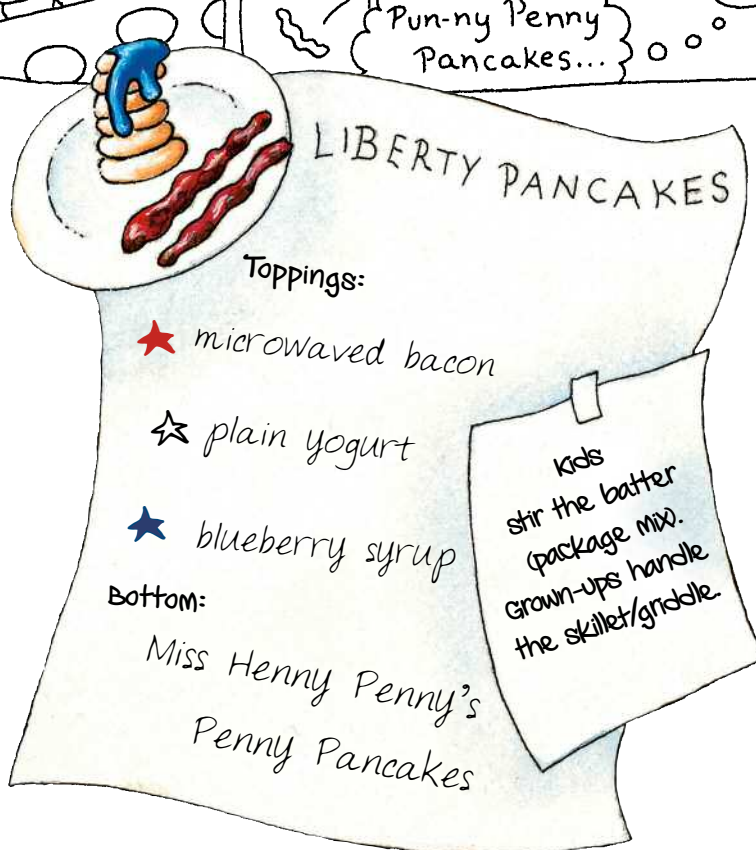 Pun-ny Penny
Pancakes...
LIBERTY PANCAKES
Toppings:
microwaved bacon
plain yogurt
blueberry syrup
Bottom:
Miss Henny Penny's
Penny Pancakes
Kids
stir the batter
(package mix).
Grown-ups handle
the skillet/griddle.